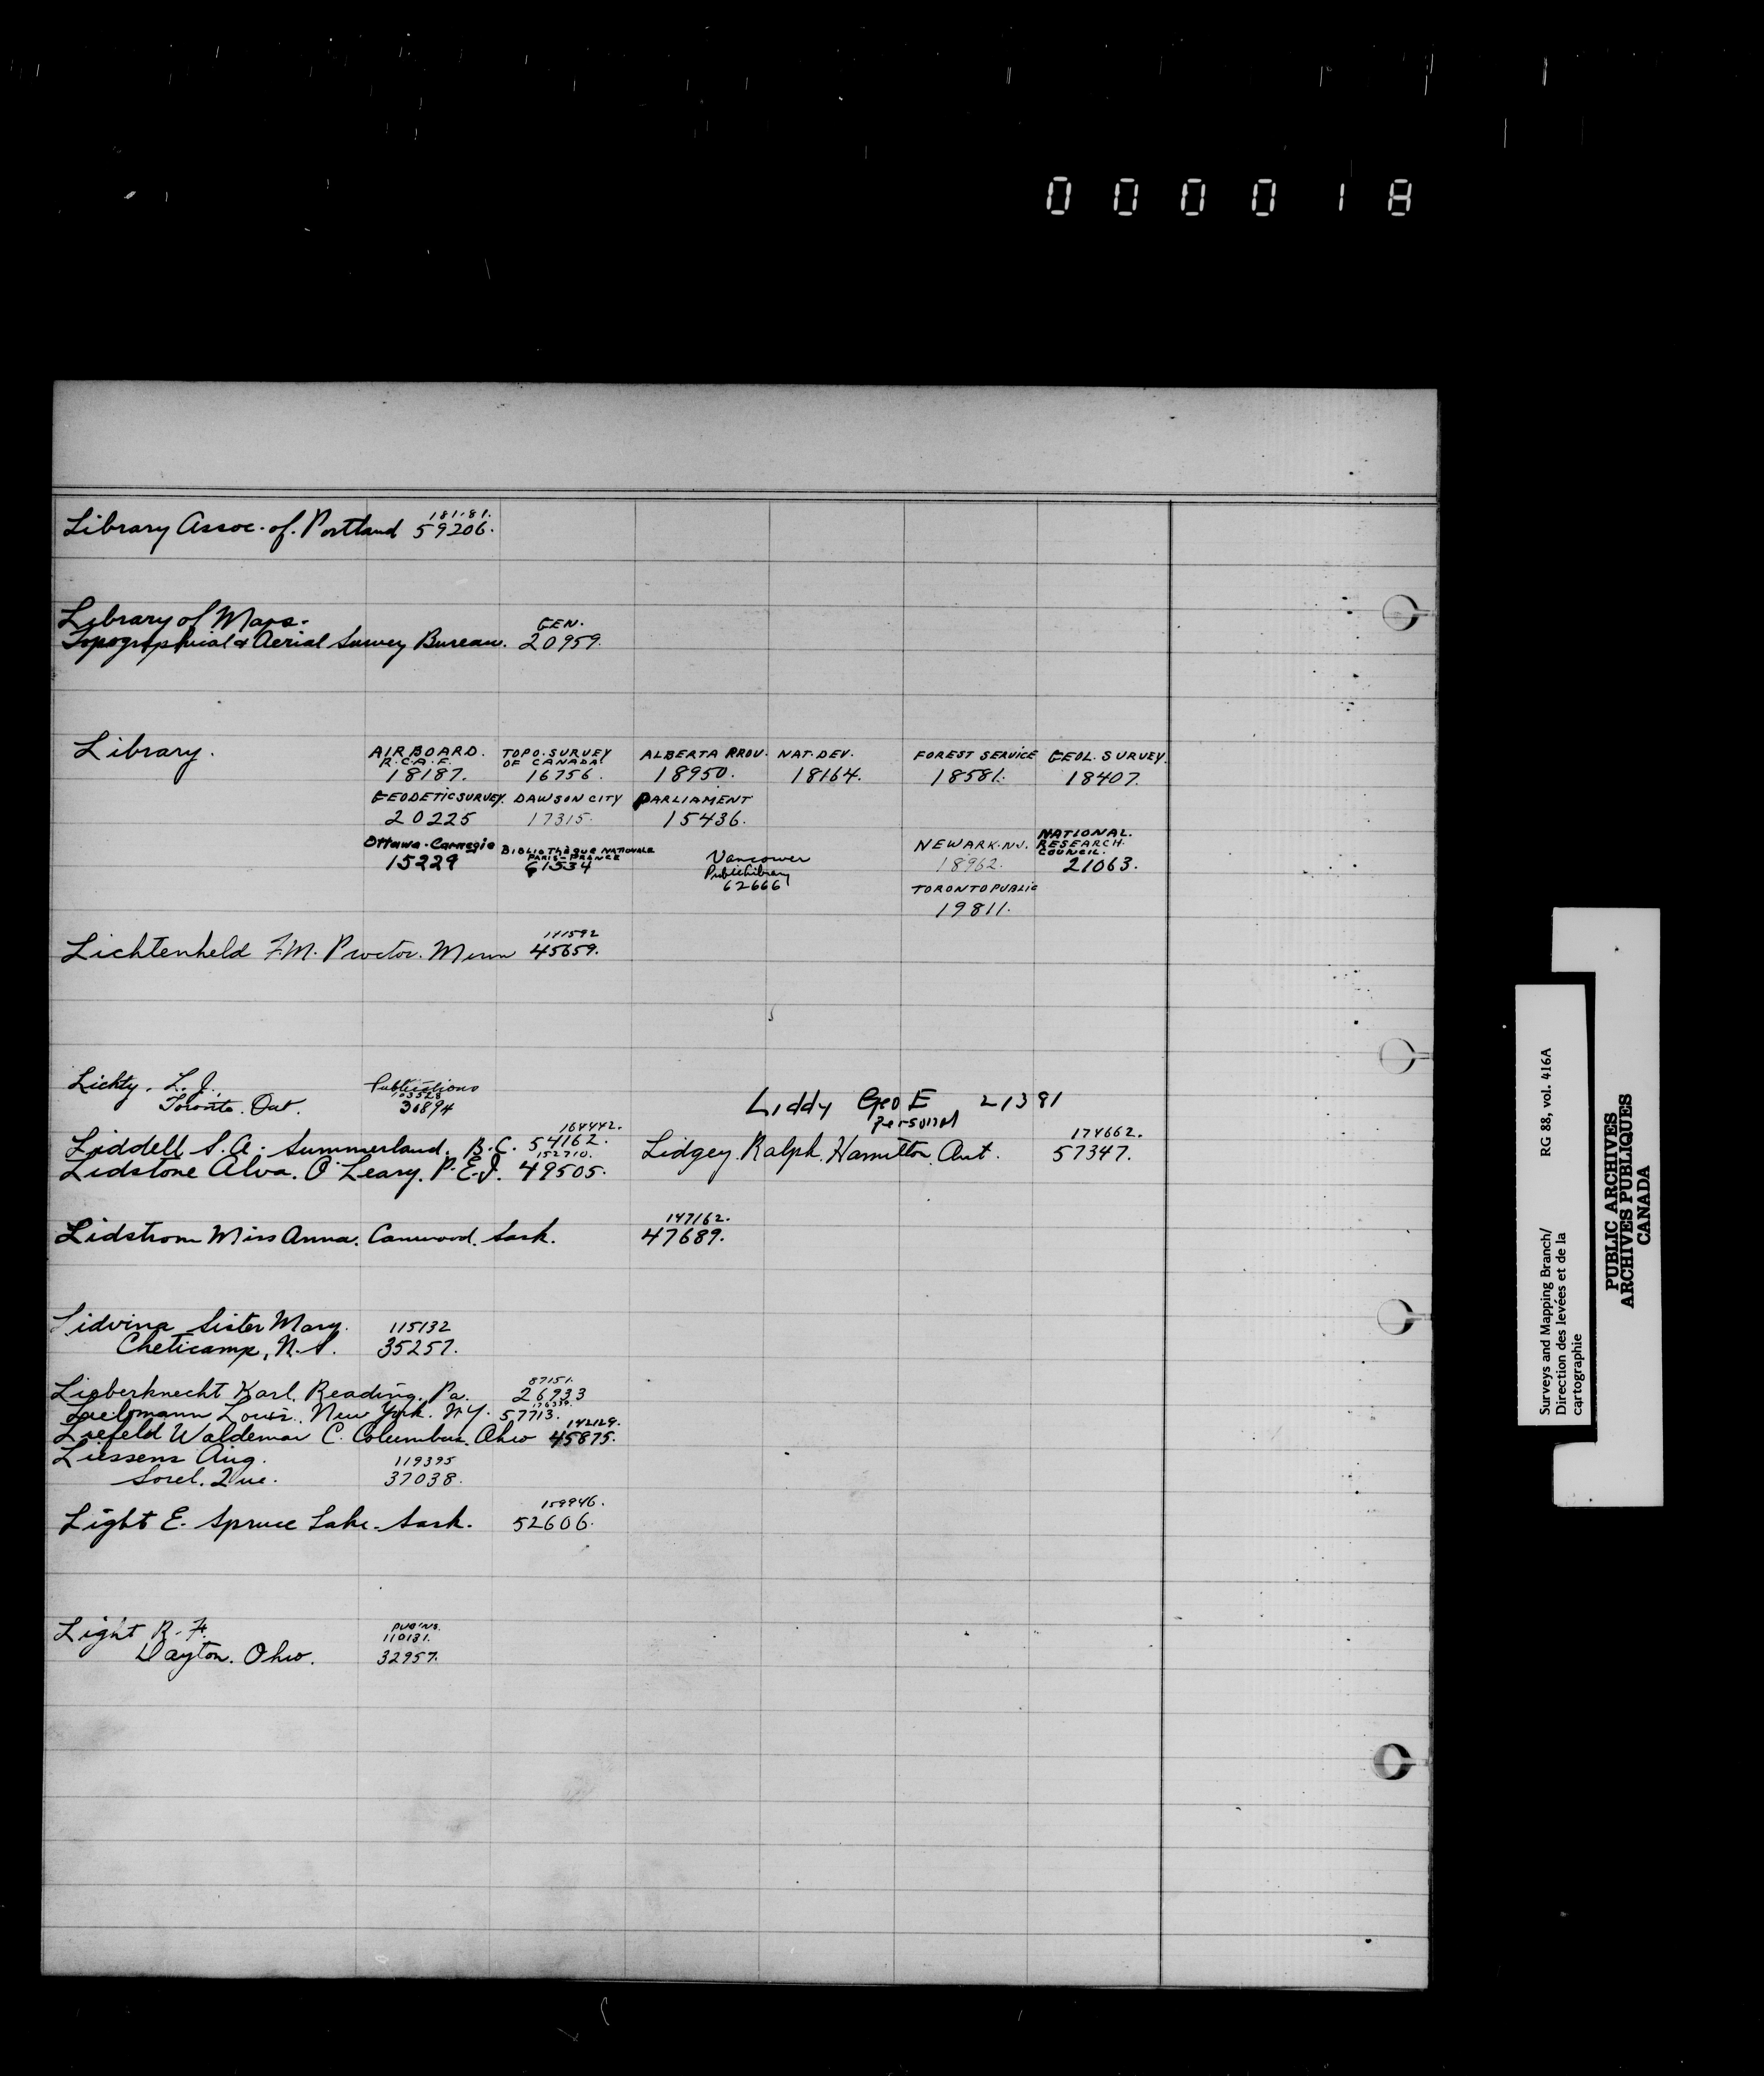 000018
181181.
Library Assoc. of. Portland 59206.
Library of Maps.
GEN.
Topographical & Aerial Survey Bureau. 20959.
Library.
AIR BOARD. R.C.A.F. 18187.
TOPO. SURVEY OF CANADA 16756.
ALBERTA PROV. 18950.
NAT. DEV. 18164.
FOREST SERVICE 18581.
GEOL. SURVEY. 18407.
GEODETIC SURVEY. 20225
DAWSON CITY 17315.
PARLIAMENT 15436.
Ottawa-Carnegie 15229
BIBLIOTHÈQUE NATIONALE PARIS-FRANCE 61534
Vancouver Public Library 62666
NEWARK. N.J. 18962.
NATIONAL. RESEARCH. COUNCIL. 21063.
TORONTO PUBLIC 19811.
141592
Lichtenheld F.M. Proctor. Minn 45659.
Lichty. L. J.
Toronto. Ont.
Publications
36894
Liddy Geo E 21391
Personal
164442.
Liddell S. A. Summerland. B.C. 54162.
174662.
Lidgey. Ralph. Hamilton. Ont. 57347.
152710.
Lidstone Alva. O'Leary. P.E.I. 49505.
147162.
Lidstrom Miss Anna. Canwood. Sask. 47689.
Lidvina Sister Mary. 115132
Cheticamp, N.S. 35257.
87151.
Lieberknecht Karl. Reading. Pa. 26933
Louis. New York. N.Y. 57713.
142129.
Liefeld Waldemar C. Columbus. Ohio 45875.
Liessens Aug. 119395
Sorel. Que. 37038.
159946.
Light E. Spruce Lake. Sask. 52606.
Light R. F. PUB'NS. 110131.
Dayton. Ohio. 32957.
Surveys and Mapping Branch/
Direction des levées et de la
cartographie
RG 88, vol. 416A
PUBLIC ARCHIVES
ARCHIVES PUBLIQUES
CANADA